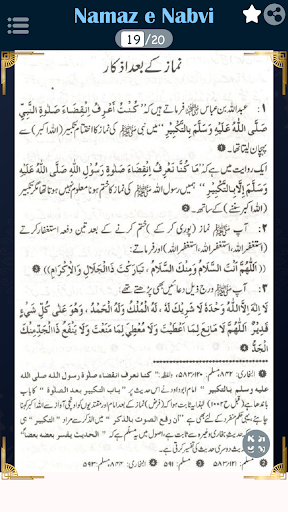 Namaz e Nabvi
19/20
نماز کے بعد اذکار
1: عبداللہ بن عباس فرماتے ہیں کہ "كُنْتُ أَعْرِفُ انْقِضَاءَ صَلٰوةِ النَّبِيِّ
صَلَّى اللّٰهُ عَلَيْهِ وَسَلَّمَ بِالتَّكْبِيْرِ" میں نبی ﷺ کی نماز کا اختتام تکبیر (اللہ اکبر) سے
پہچان لیتا تھا۔
ایک روایت میں ہے کہ "مَا كُنَّا نَعْرِفُ انْقِضَاءَ صَلٰوةِ رَسُوْلِ اللّٰهِ صَلَّى اللّٰهُ عَلَيْهِ
وَسَلَّمَ إِلَّا بِالتَّكْبِيْرِ" ہمیں رسول اللہ ﷺ کی نماز کا ختم ہونا معلوم نہیں ہوتا تھا مگر تکبیر
(اللہ اکبر سننے) کے ساتھ۔
2: آپ ﷺ نماز (پوری کر کے) ختم کرنے کے بعد تین دفعہ استغفار کرتے
(استغفر اللہ، استغفر اللہ، استغفر اللہ) اور فرماتے:
((اَللّٰهُمَّ أَنْتَ السَّلَامُ وَمِنْكَ السَّلَامُ، تَبَارَكْتَ ذَا الْجَلَالِ وَالْإِكْرَامِ))
3: آپ ﷺ درج ذیل دعائیں بھی پڑھتے تھے:
لَا إِلٰهَ إِلَّا اللّٰهُ وَحْدَهُ لَا شَرِيْكَ لَهُ، لَهُ الْمُلْكُ وَلَهُ الْحَمْدُ، وَهُوَ عَلٰى كُلِّ شَيْءٍ
قَدِيْرٌ اَللّٰهُمَّ لَا مَانِعَ لِمَا أَعْطَيْتَ وَلَا مُعْطِيَ لِمَا مَنَعْتَ وَلَا يَنْفَعُ ذَا الْجَدِّ مِنْكَ
الْجَدُّ
البخاری: ۸۴۲، مسلم: ۵۸۳/۱۲۰ "كنا نعرف انقضاء صلوة رسول الله صلى الله
عليه وسلم بالتكبير" امام ابوداود نے اس حدیث پر "باب التكبير بعد الصلوة" کا باب
"أن رفع الصوت بالذكر"
"الحديث يفسر بعضه بعضا"
مسلم: ۵۸۳/۱۲۱ مسلم: ۵۹۱ البخاری: ۸۴۴، مسلم: ۵۹۳